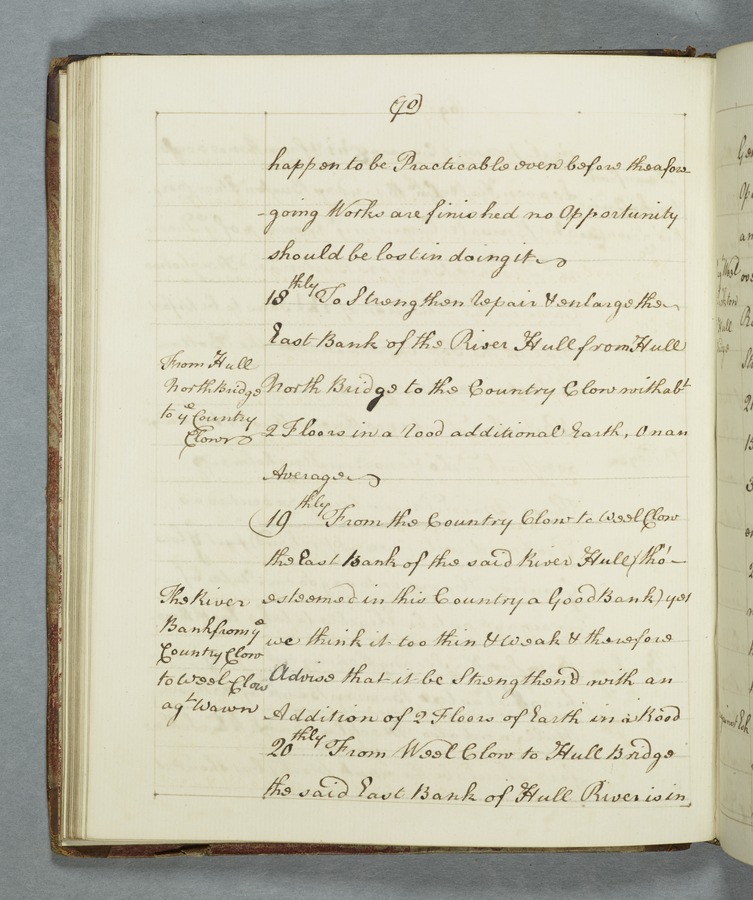 (90)
happen to be Practicable even before the afore-
-going Works are finished no Opportunity
should be lost in doing it
18thly To Strengthen repair & enlarge the
East Bank of the River Hull from Hull
From Hull
North Bridge
to ye Country
Clow
North Bridge to the Country Clow with abt
2 Floors in a rood additional Earth, On an
Average
19thly From the Country Clow to Weel Clow
the East Bank of the said River Hull (tho'
The River
Bank from ye
Country Clow
to Weel Clow
agt Wawn
esteemed in this Country a Good Bank) yet
we think it too thin & weak & therefore
Advise that it be Strengthend with an
Addition of 2 Floors of Earth in a Rood
20thly From Weel Clow to Hull Bridge
the said East Bank of Hull River is in